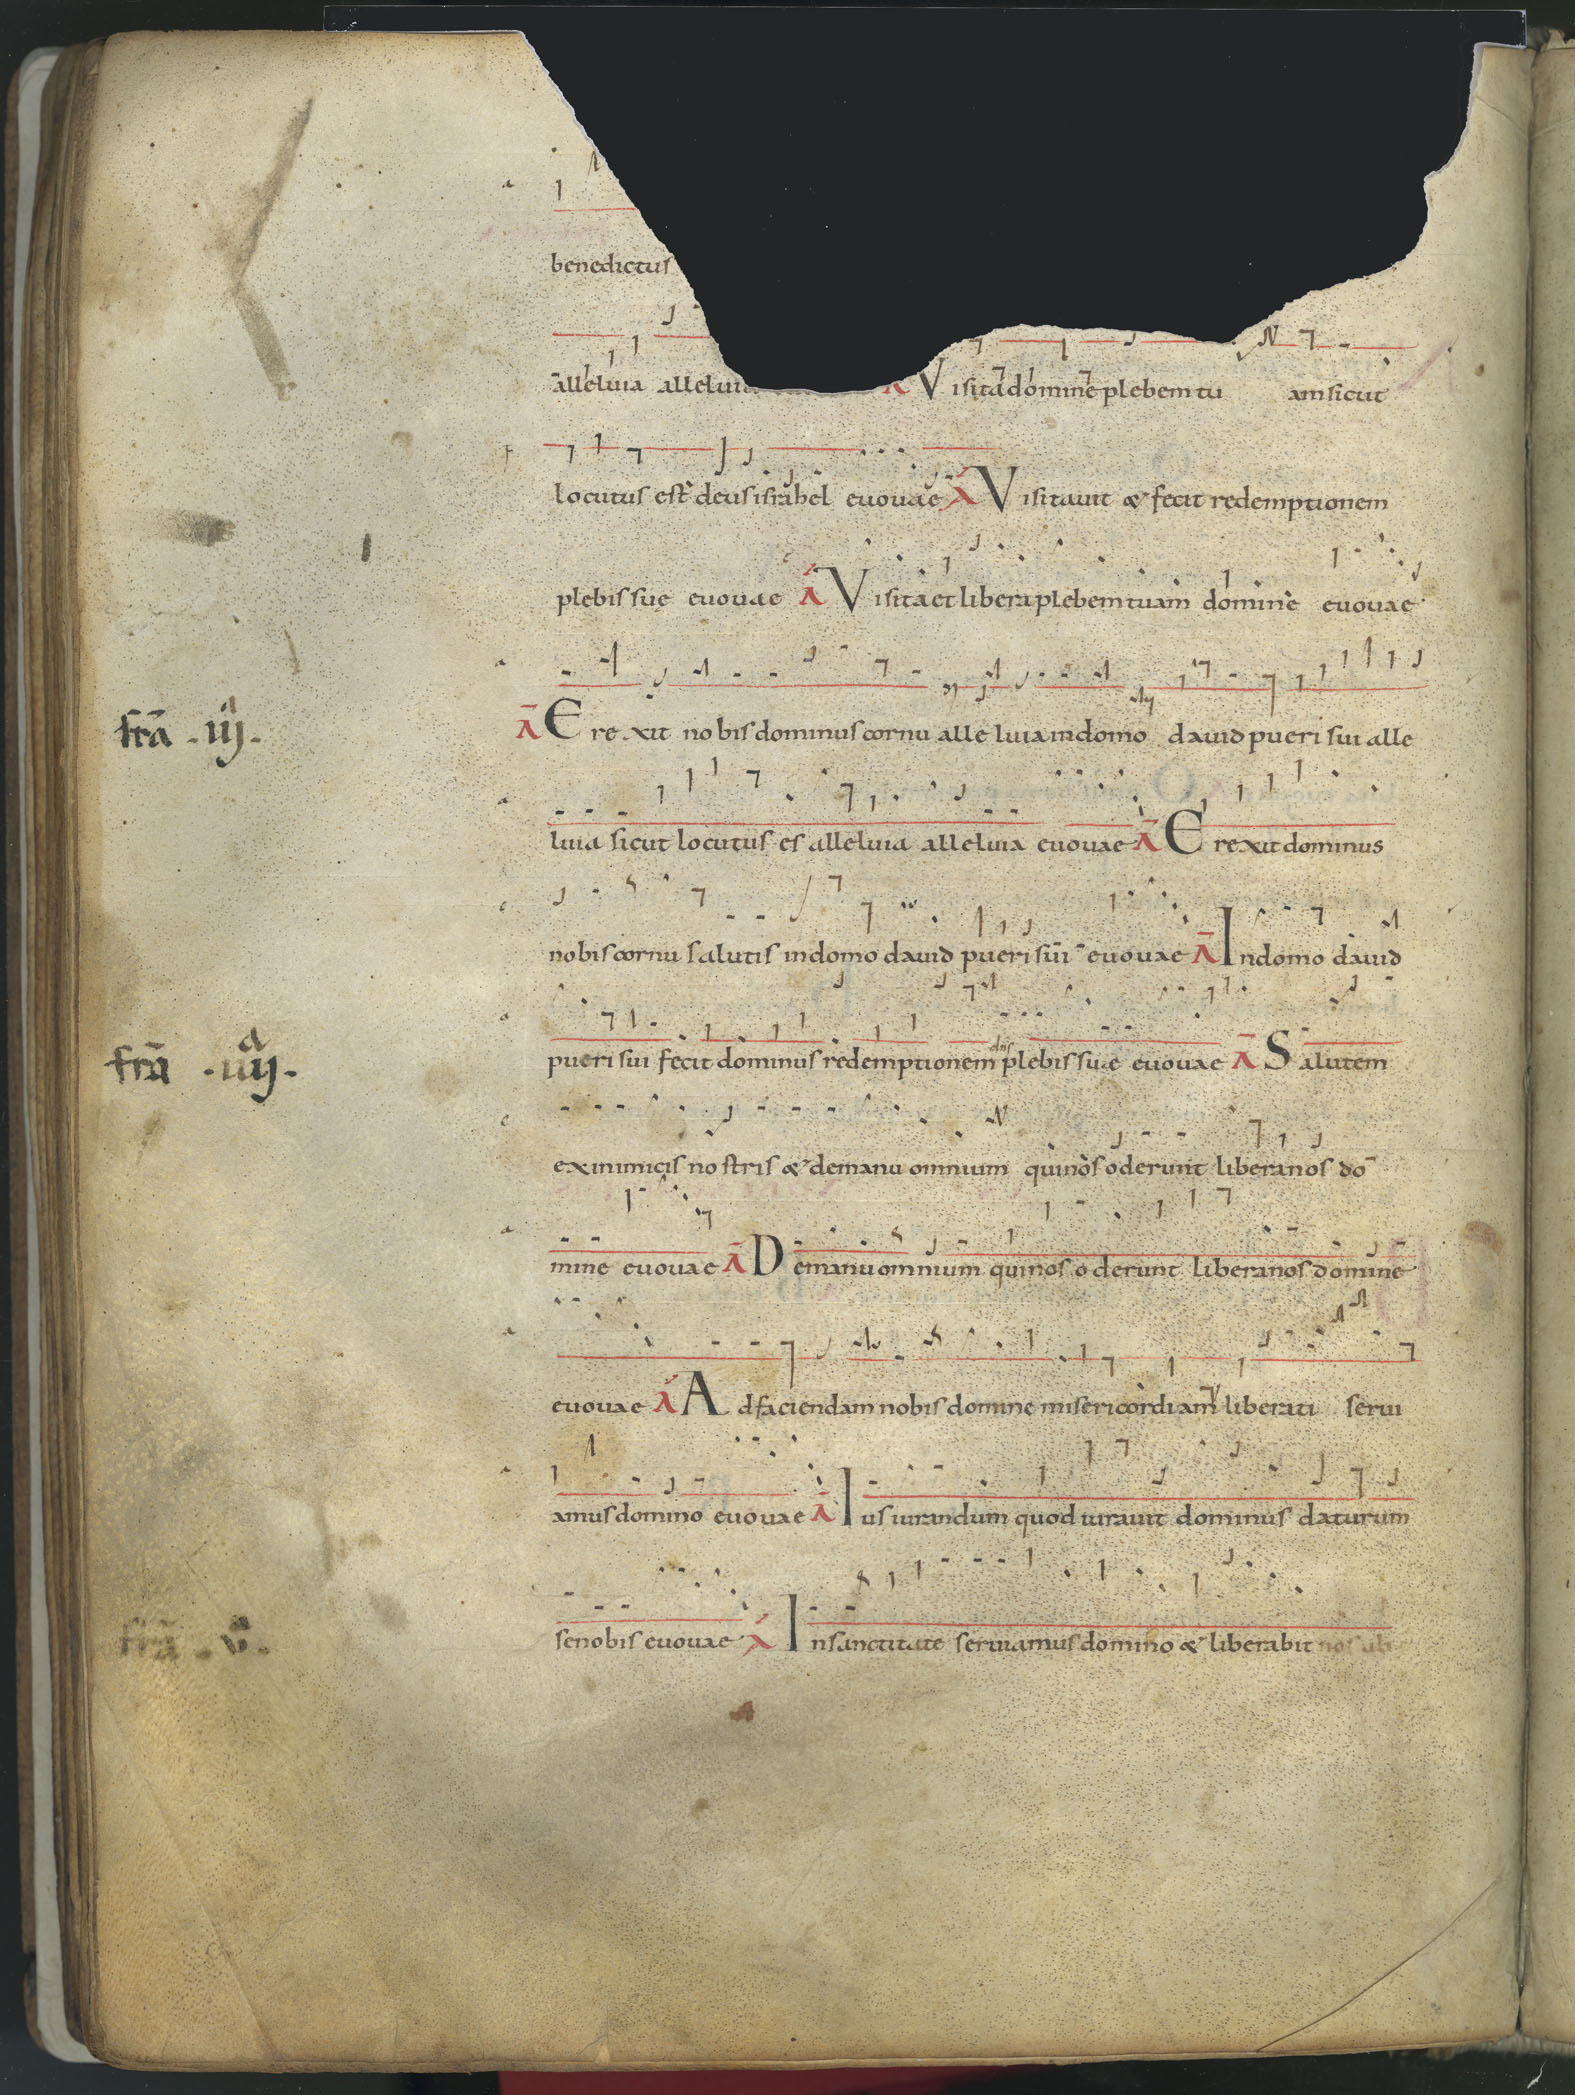 benedictus
alleluia alleluia A Visita domine plebem tu am sicut
locutus est deus israhel euouae A Visitauit & fecit redemptionem
plebis sue euouae A Visita et libera plebem tuam domine euouae
frā .iij.
a
A Erexit nobis dominus cornu alleluia in domo dauid pueri sui alle
luia sicut locutus es alleluia alleluia euouae A Erexit dominus
nobis cornu salutis in domo dauid pueri sui euouae A In domo dauid
frā .iiij.
a
pueri sui fecit dominus redemptionem plebis suae euouae A Salutem
ex inimicis nostris & de manu omnium qui nos oderunt libera nos do
mine euouae A De manu omnium qui nos oderunt libera nos domine
euouae A Ad faciendam nobis domine misericordiam liberati serui
amus domino euouae A Iusiurandum quod iurauit dominus daturum
frā .v.
a
se nobis euouae A In sanctitate seruiamus domino & liberabit nos